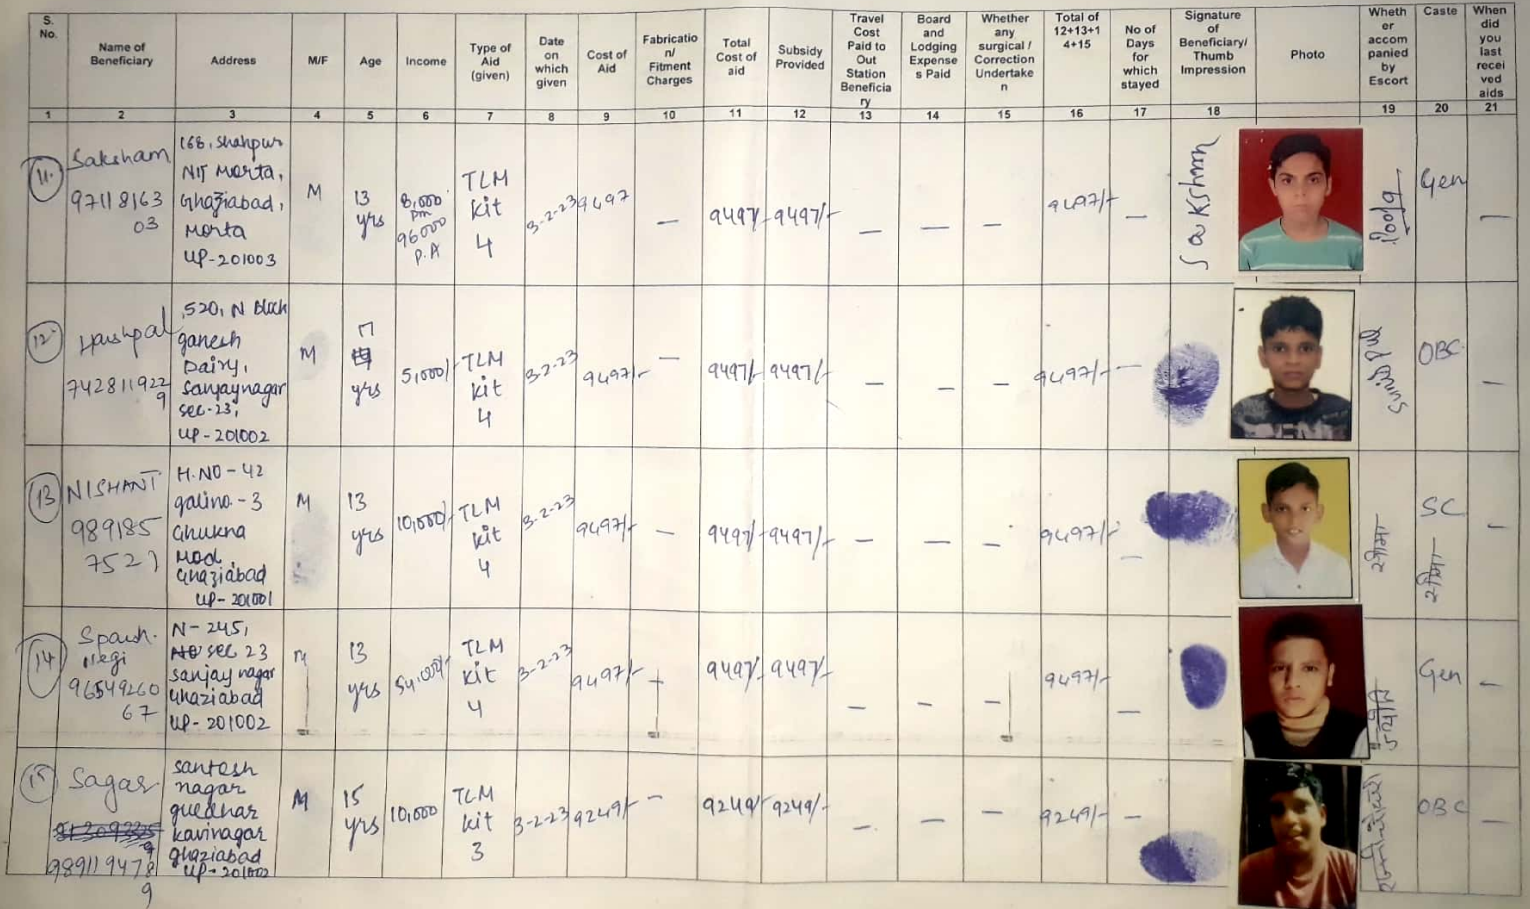 S. No.
Name of Beneficiary
Address
M/F
Age
Income
Type of Aid (given)
Date on which given
Cost of Aid
Fabricatio n/ Fitment Charges
Total Cost of aid
Subsidy Provided
Travel Cost Paid to Out Station Beneficia ry
Board and Lodging Expense s Paid
Whether any surgical / Correction Undertake n
Total of 12+13+1 4+15
No of Days for which stayed
Signature of Beneficiary/ Thumb Impression
Photo
Wheth er accom panied by Escort
Caste
When did you last recei ved aids
1 2 3 4 5 6 7 8 9 10 11 12 13 14 15 16 17 18 19 20 21
11.
Saksham
97118163
03
168, Shahpur
NIT Morta,
Ghaziabad,
Morta
UP-201003
M
13
yrs
8,000
pm
96000
P.A
TLM
Kit
4
3-2-23
9497
—
9497/-
9497/-
—
—
—
9497/-
—
Sakshm
Pooja
Gen
—
12
742811922
9
520, N Block
ganesh
Dairy,
Sanjaynagar
sec-23,
UP-201002
M
yrs
5,000/-
TLM
Kit
4
3-2-23
9497/-
—
9497/-
9497/-
—
—
—
9497/-
—
OBC
—
13
NISHANT
989185
7521
H.NO-42
galino.-3
Ghukna
Mod,
Ghaziabad
UP-201001
M
13
yrs
10,000/-
TLM
Kit
4
3-2-23
9497/-
—
9497/-
9497/-
—
—
—
9497/-
—
सीमा
SC
सीमा
—
14
Negi
96549260
67
N-245,
sec 23
Sanjay nagar
Ghaziabad
UP-201002
M
13
yrs
54,000/-
TLM
Kit
4
3-2-23
9497/-
—
9497/-
9497/-
—
—
—
9497/-
—
ज्योति
Gen
—
15
Sagar
989119478
9
Santosh
nagar
kavinagar
ghaziabad
UP-201002
M
15
yrs
10,000
TLM
Kit
3
3-2-23
9249/-
—
9249/-
9249/-
—
—
—
9249/-
—
OBC
—